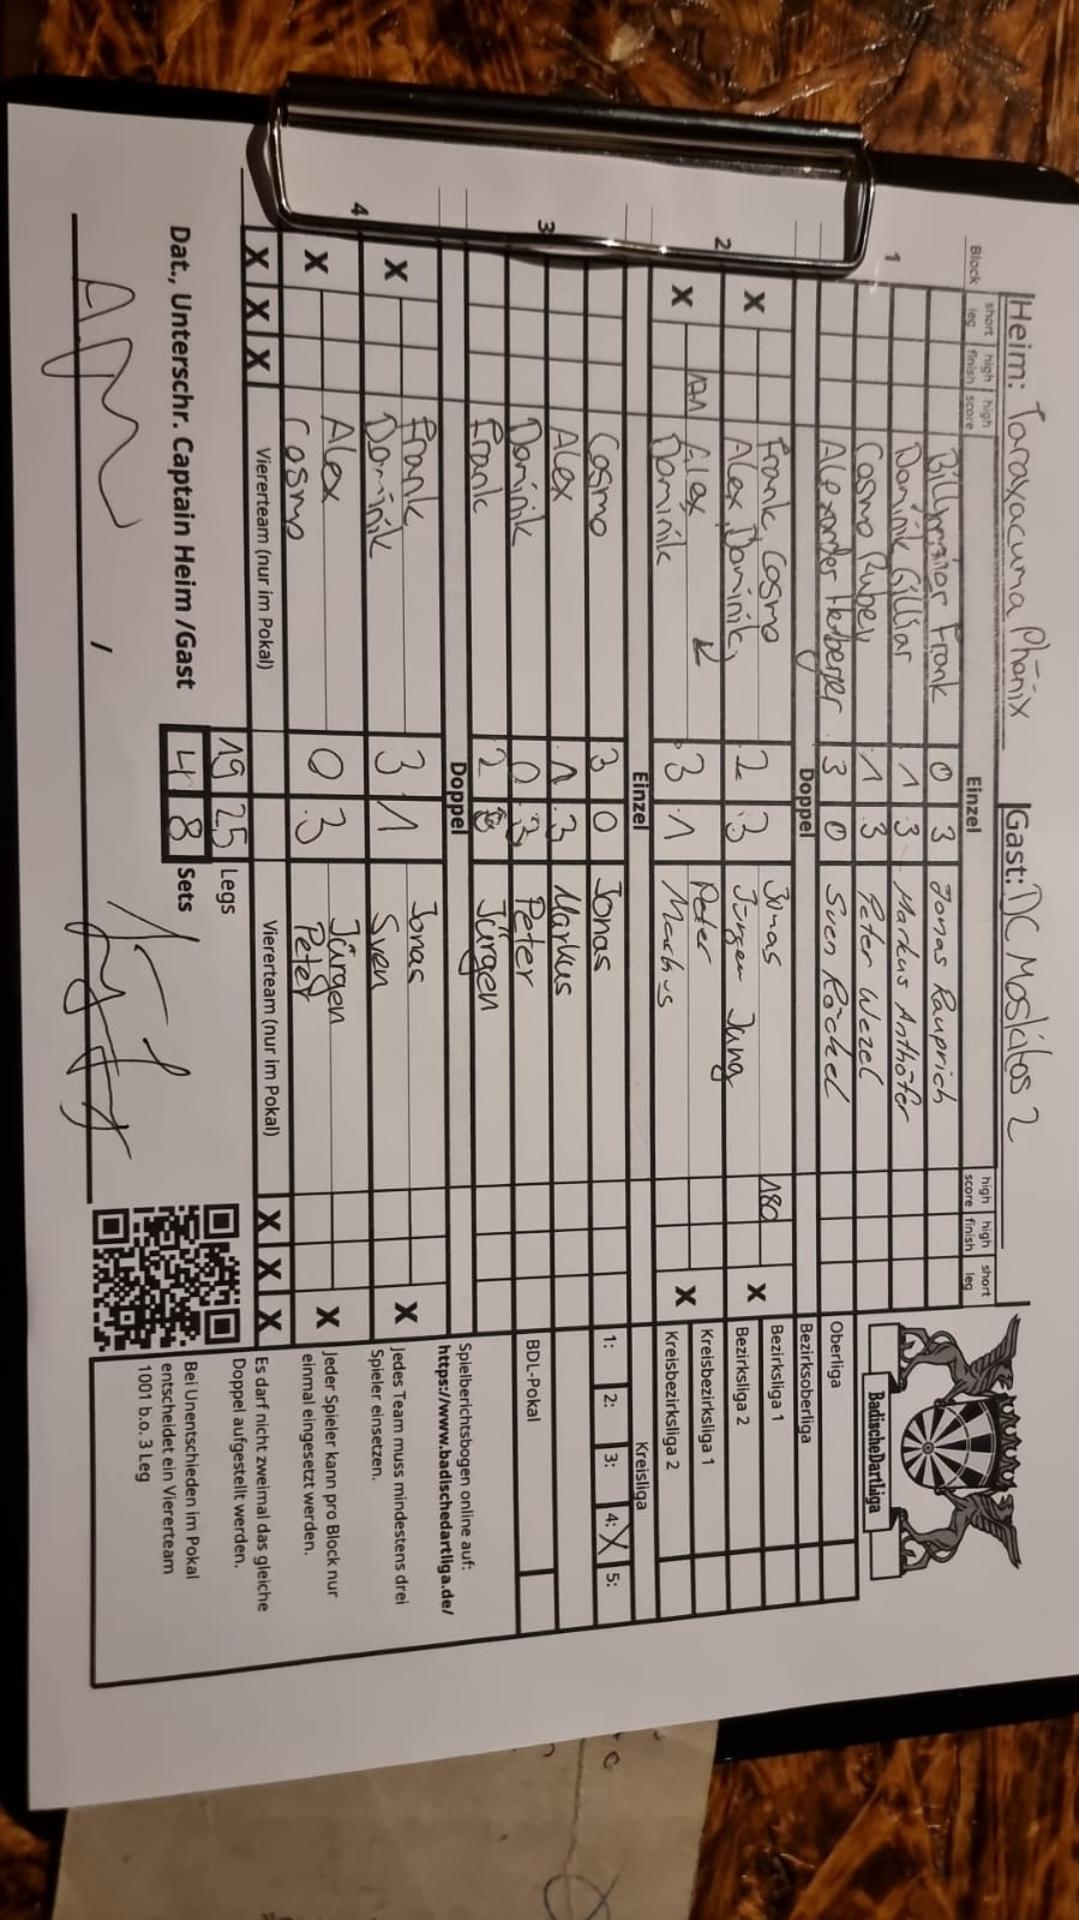 Heim: Taraxacuma Phönix Gast: DC Moskitos 2
Block short leg high finish high score Einzel high score high finish short leg
Billymaior Frank 0 3 Jonas Rauprich
1 Dominik Gilliar 1 3 Markus Anthofer
Cosmo Rubey 1 3 Peter Wezel
Alexander Herberger 3 0 Sven Röckel
Doppel
Frank, Cosmo Jonas 180
2 X Alex, Dominik, 2 3 Jürgen Jung X
171 Alex Peter
X Dominik 3 1 Markus X
Einzel
Cosmo 3 0 Jonas
3 Alex 1 3 Markus
Dominik 0 3 Peter
Frank 2 3 Jürgen
Doppel
Frank Jonas
X Dominik 3 1 Sven X
4 Alex Jürgen
X Cosmo 0 3 Peter X
X X X Viererteam (nur im Pokal) Viererteam (nur im Pokal) X X X
19 25 Legs
Dat., Unterschr. Captain Heim /Gast 4 8 Sets
BadischeDartliga
Oberliga
Bezirksoberliga
Bezirksliga 1
Bezirksliga 2
Kreisbezirksliga 1
Kreisbezirksliga 2
Kreisliga
1: 2: 3: 4: X 5:
BDL-Pokal
Spielberichtsbogen online auf:
https://www.badischedartliga.de/
Jedes Team muss mindestens drei
Spieler einsetzen.
Jeder Spieler kann pro Block nur
einmal eingesetzt werden.
Es darf nicht zweimal das gleiche
Doppel aufgestellt werden.
Bei Unentschieden im Pokal
entscheidet ein Viererteam
1001 b.o. 3 Leg